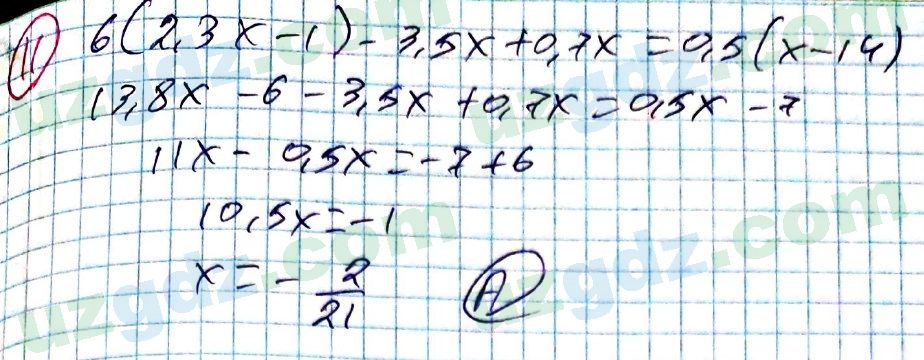 11 6(2,3x-1)-3,5x+0,7x=0,5(x-14)
13,8x-6-3,5x+0,7x=0,5x-7
11x-0,5x=-7+6
10,5x=-1
x=-2/21 A
uzgdz.com